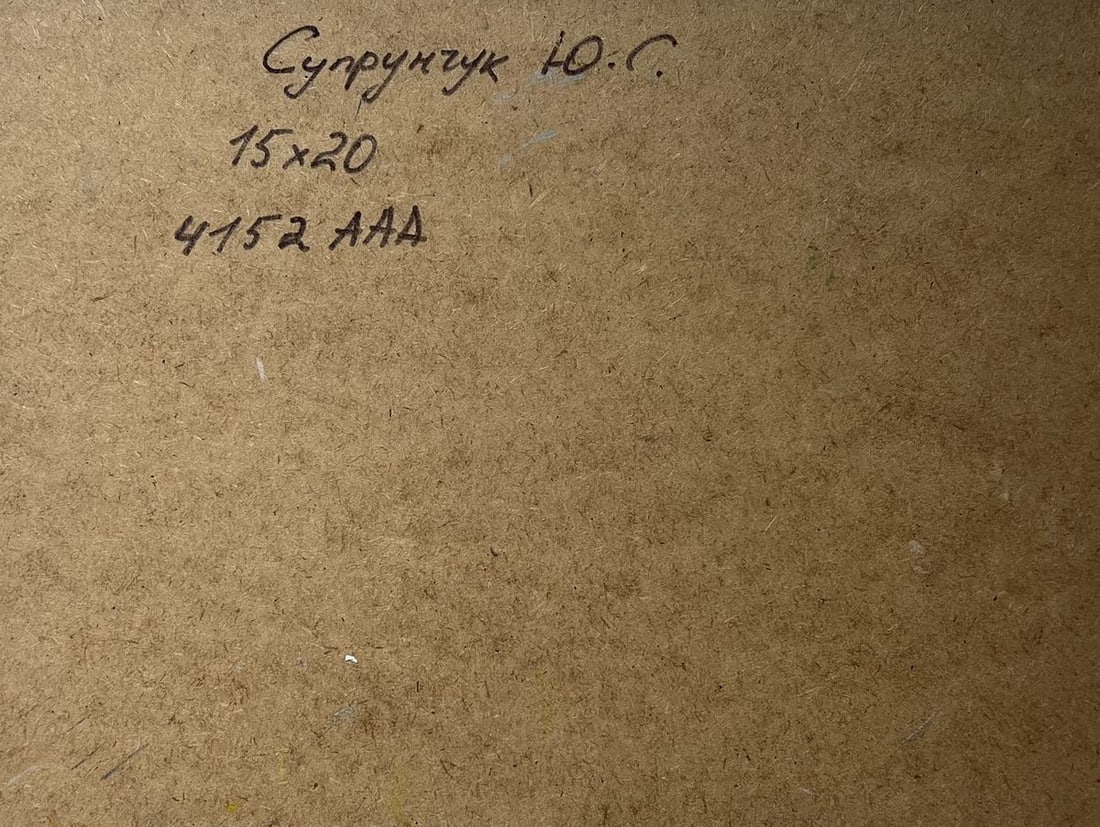 Супрунчук Ю.С.
15x20
4152 ААА